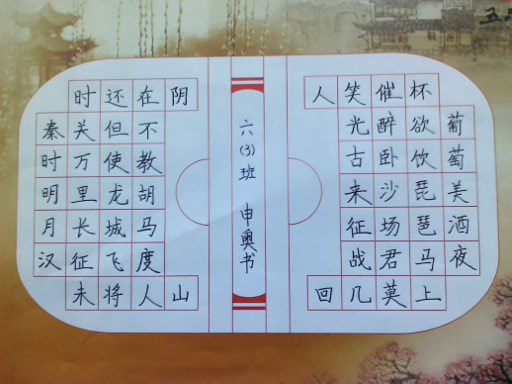 葡萄美酒夜
杯欲饮琵琶马上
催醉卧沙场君莫
笑光古来征战几
人回
六(3)班 申奥书
阴山
在不教胡马度人
还但使龙城飞将
时关万里长征未
秦时明月汉